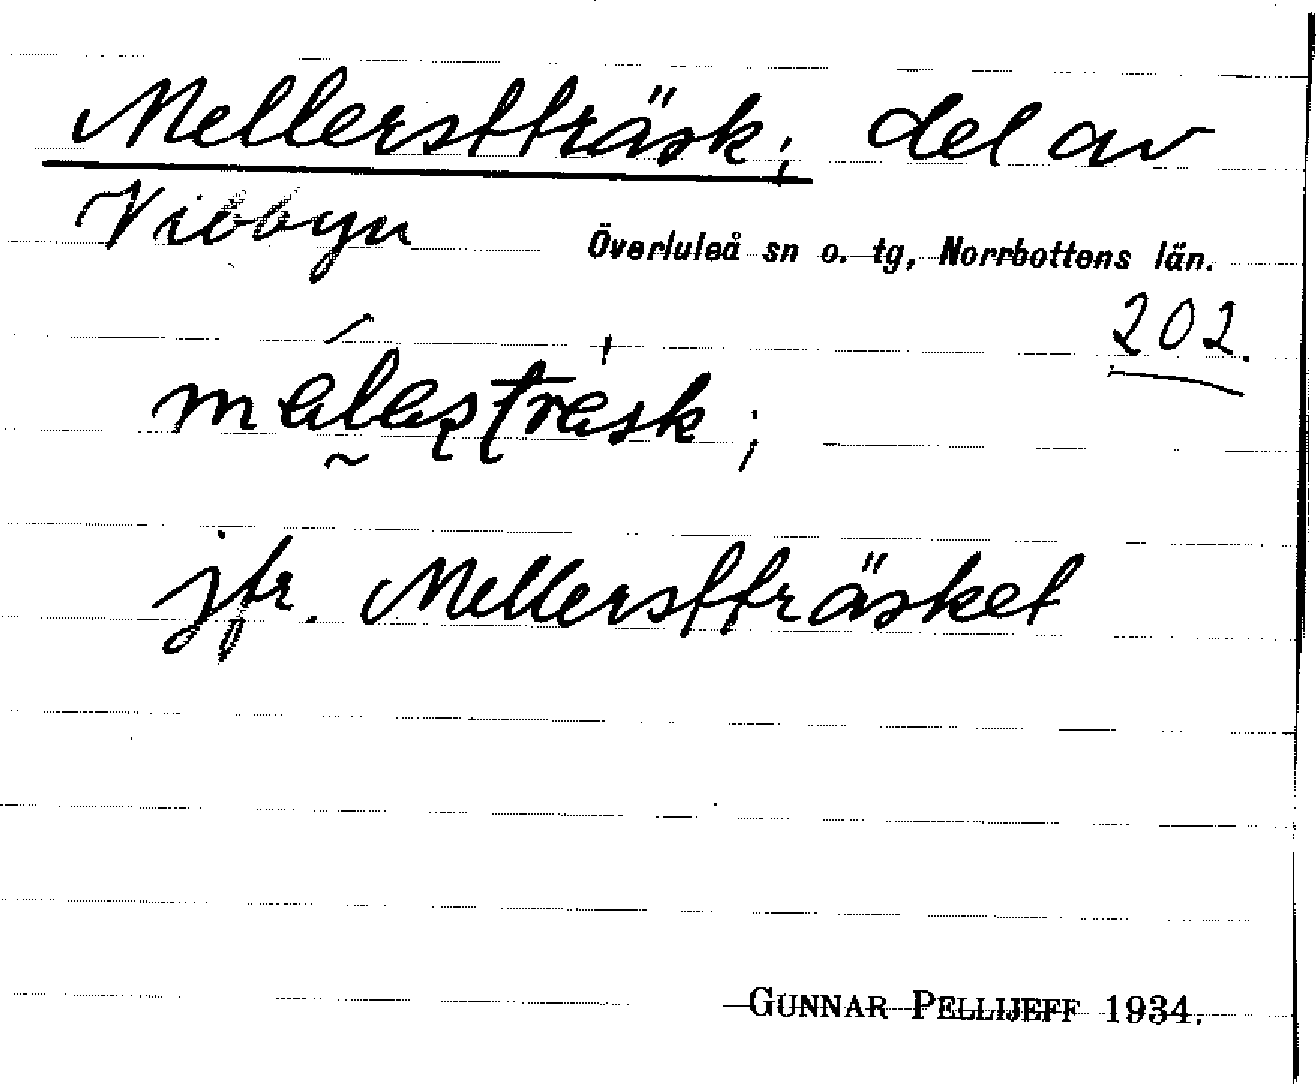 Mellerstträsk; del av
Vibbyn Överluleå sn o. tg, Norrbottens län.
202.
jfr. Mellerstträsket
GUNNAR PELLIJEFF 1934.